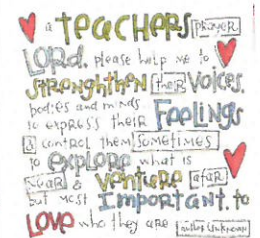 a teachers prayer
LORD, please help me to
strenghthen their voices,
bodies and minds
to express their Feelings
& control them sometimes
to explore what is
near & venture afar
but most Important, to
Love who they are author unknown